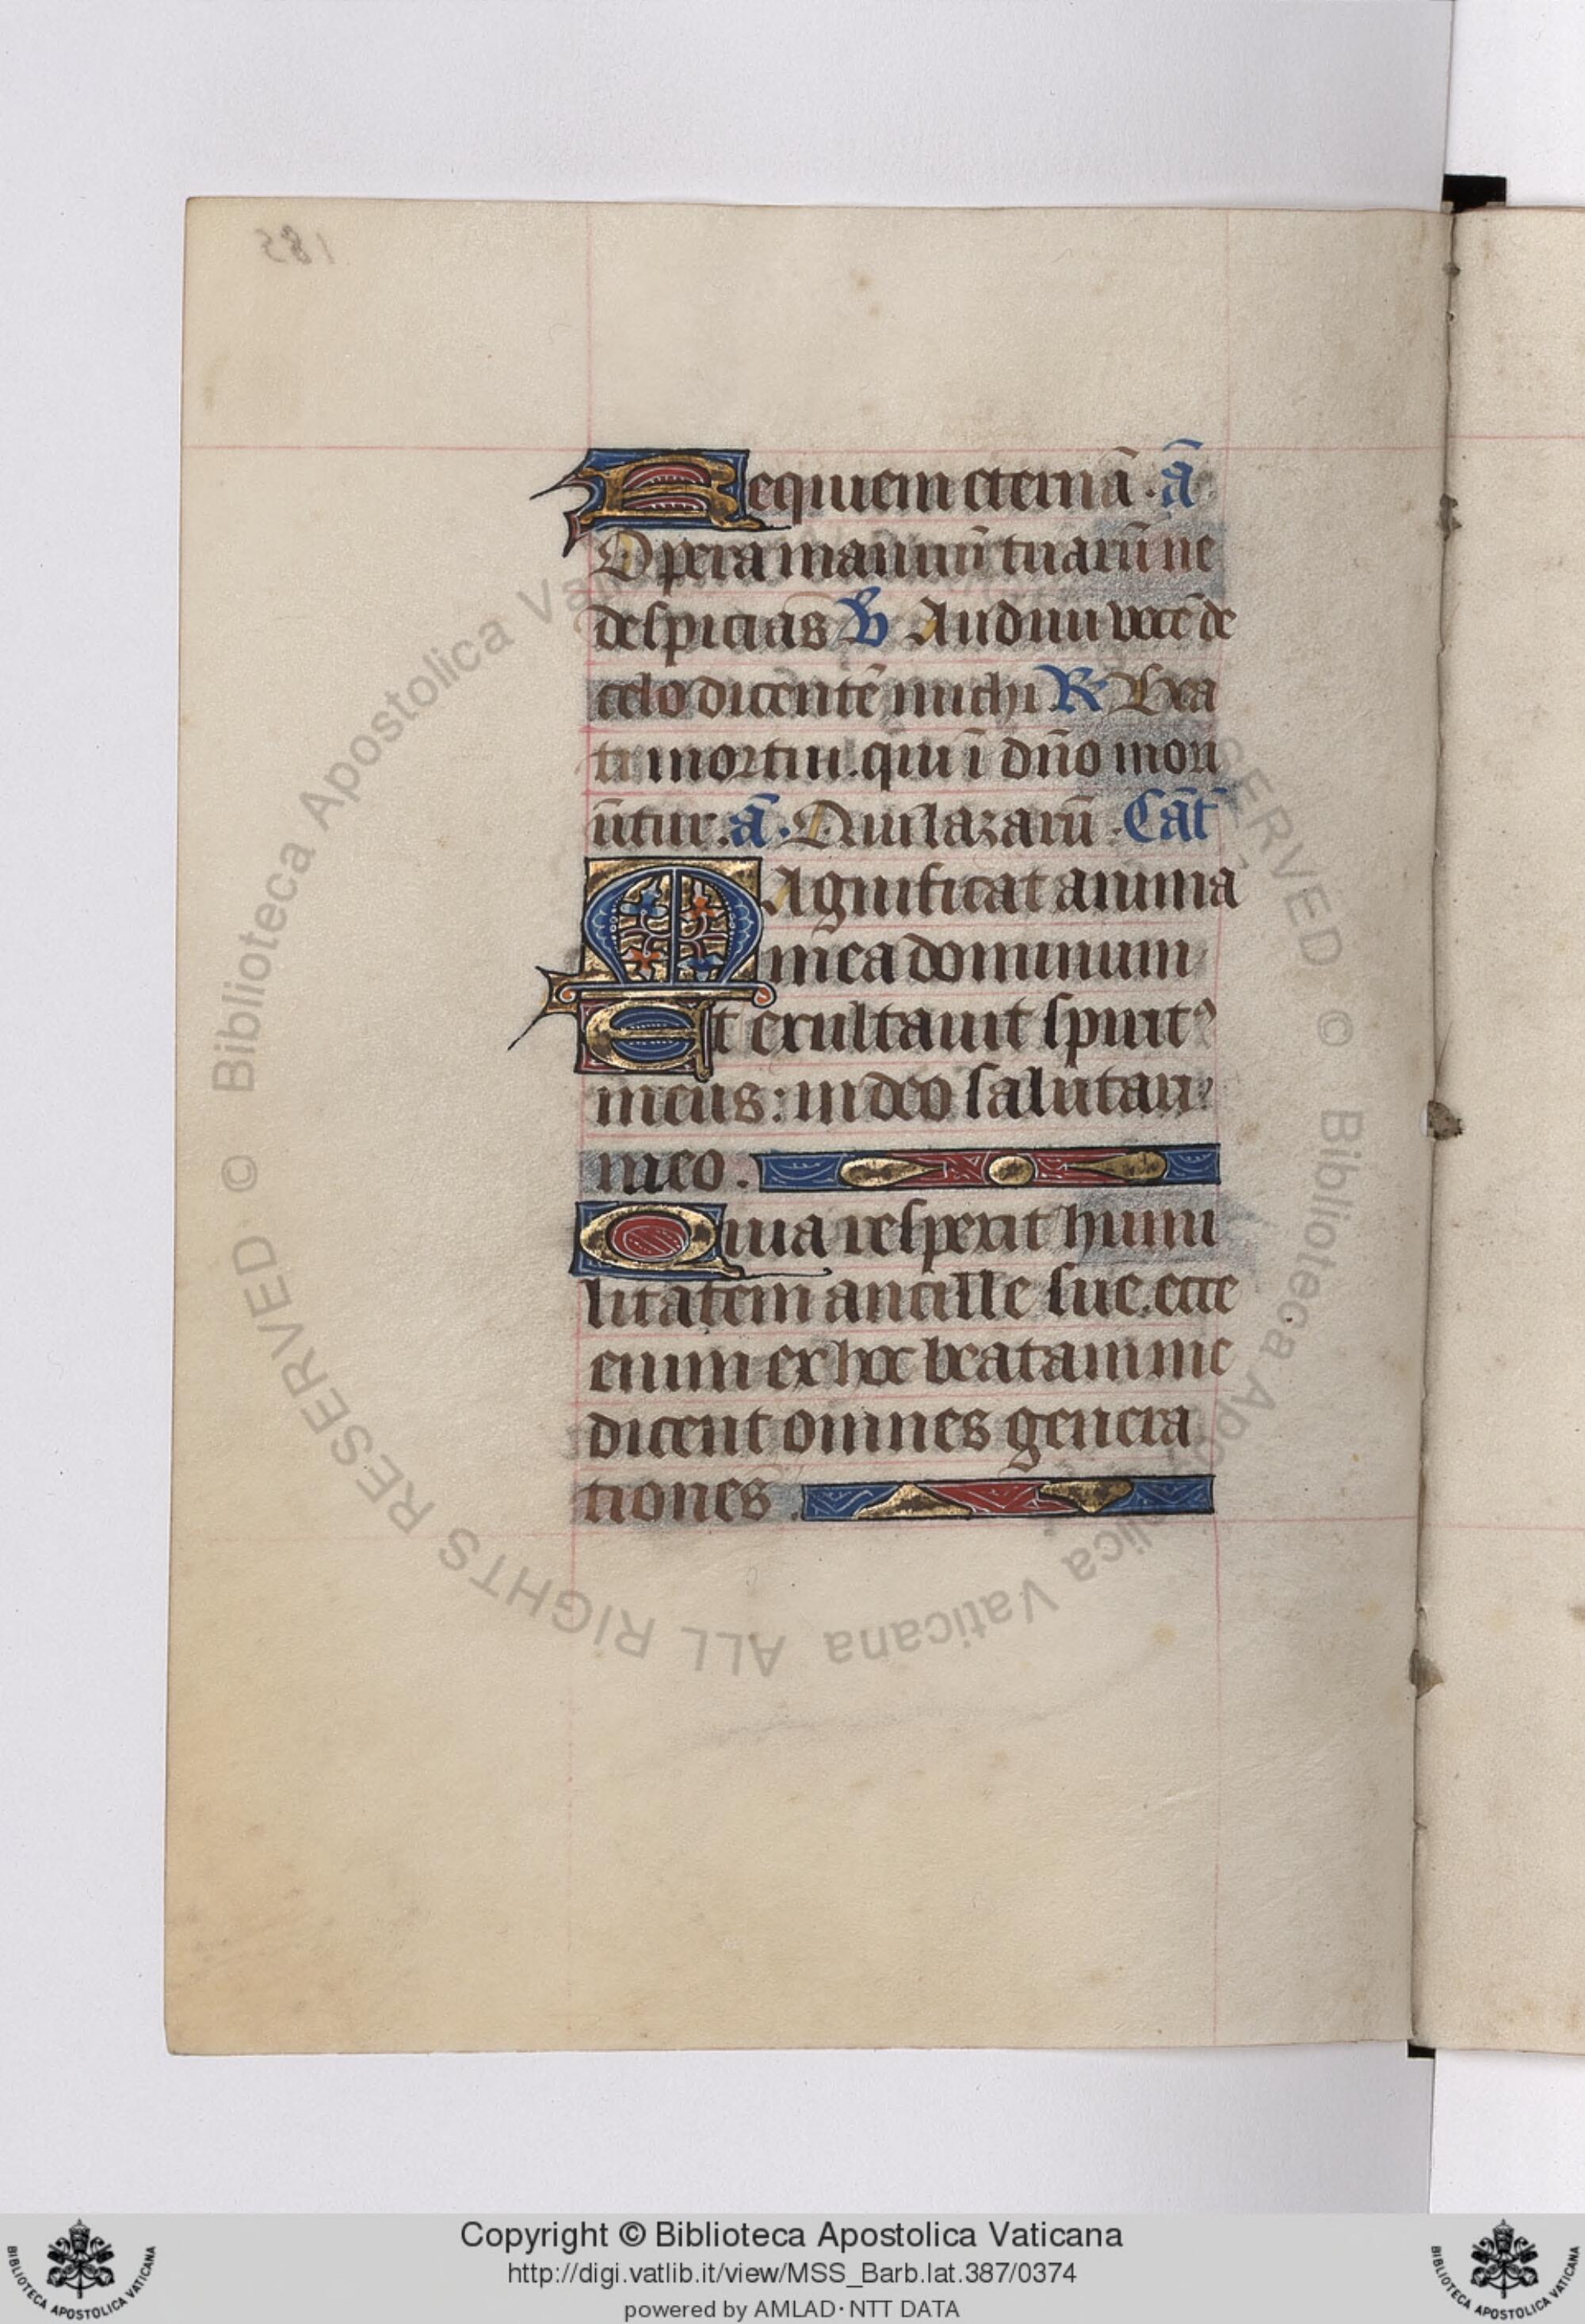 Requiem eternā . ā
Opera manuū tuarū ne
despicias V Audiui vocē de
celo dicentē michi R Bea
ti mortui. qui ī dño mori
ūtur. ā. Qui lazarū . Cāt
MAgnificat anima
mea dominum
Et exultauit spiritꝰ
meus: in deo salutari
meo.
Quia respexit humi
litatem ancille sue. ecce
enim ex hoc beatam me
dicent omnes genera
tiones.
© Biblioteca Apostolica Vaticana ALL RIGHTS RESERVED
Copyright © Biblioteca Apostolica Vaticana
http://digi.vatlib.it/view/MSS_Barb.lat.387/0374
powered by AMLAD · NTT DATA
BIBLIOTECA APOSTOLICA VATICANA
BIBLIOTECA APOSTOLICA VATICANA